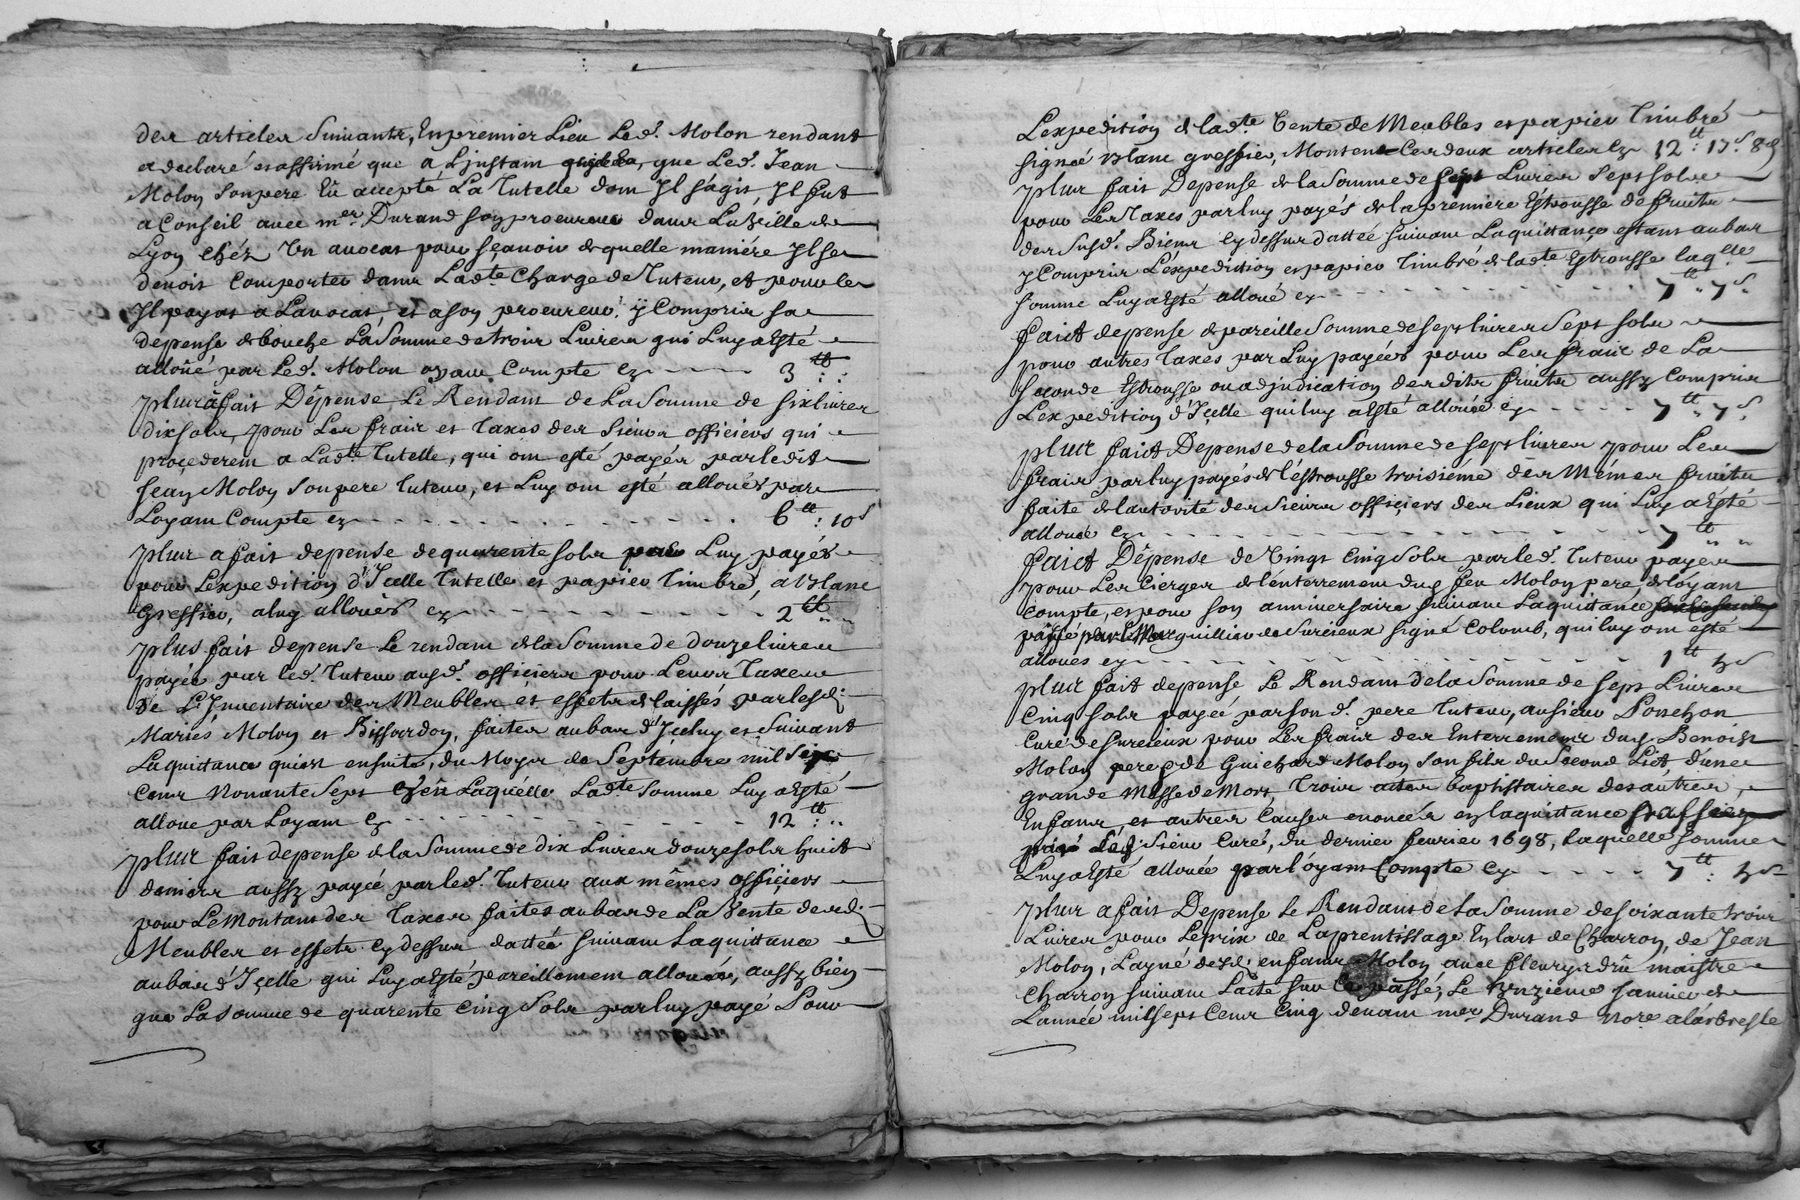 des articles suivants, Enpremier Lieu Led. Molon rendant
a declaré et affirmé que a Linstam que Led. Jean
Molon son pere Eû accepté La Tutelle dom Il s'agit, Il fut
a Conseil avec mer Durand son procureur dans La Ville de
Lyon chéz Un avocat pour sçavoir de quelle maniére Il se
devoit Comporter dans Ladte Charge de Tuteur, et pour le
Il payat a Lavocat, et a son procureur, ÿ Compris sa
depense de bouche La Somme de trois Livres qui Luy a Esté
alloüé par Led. Molon oyam Compte cy - - - - 3 tt
plus â fait Dépense Le Rendam de La Somme de six livres
dix sols, pour Les frais et taxes des sieurs officiers qui
proçederem a Ladte Tutelle, qui om esté payés par ledit
Jean Molon son pere tuteur, et Luy om esté alloués par
Loyam Compte cy - - - - - - - - 6 tt : 10 s
plus a fait depense de quarente sols par Luy payés
pour L'expedition d'Icelle tutelle et papier timbré, a Blanc
Greffier, a luy alloués cy - - - - - - - 2 tt
plus fait depense Le rendam de la Somme de douze livres
payée par led. tuteur ausd. officiers pour Leurs Taxes
de L'Inventaire des Meubles et effets de laissés par lesd.
Mariés Molon et Bissardon, faites au bas d'Içeluy et suivant
La quittance qui est ensuite, du Moys de Septembre mil six
cens Nonante Sept Laquelle Ladte Somme Luy a Esté
alloué par Loyam cy - - - - - - - 12 tt
plus fait depense de la Somme de dix Livres douze sols huit
deniers aussy payée par led. Tuteur aux mêmes offiçiers
pour Le Montant des Taxes faites au bas de La Vente desd.
Meubles et effets cy dessus dattée suivam La quittance
au bas d'Içelle qui Luy a Esté pareillemem allouée, aussy bien
que La Somme de quarente Cinq Sols par luy payé Pour
L'expedition de ladte Vente de Meubles et papier timbré
signée Blanc greffier, Montent Ces deux articles cy 12 tt 17 s 8 d
plus fait Depense de la Somme de sept Livres sept sols
pour Les Taxes par luy payés de la premiere Estrousse de fruits
des susd. Biens cy dessus dattée suivam La quittance estant au bas
y Compris L'expedition et papier timbré de ladte Estrousse laqlle
somme Luy a Esté alloué cy - - - - - - - 7 tt 7 s
faict depense de pareille Somme de sept livres Sept sols
pour autres taxes par Luy payées pour Les frais de La
seconde Estrousse ou adjudication desdits fruits aussy Compris
L'expedition d'Içelle qui luy a Esté allouée cy - - - - 7 tt 7 s
plus faict Depense de la Somme de sept livres pour Les
frais par luy payés de l'estrousse troisiéme des Mêmes fruits
faite de lautorité des sieurs offiçiers des Lieux qui Luy a Esté
allouée cy - - - - - - - - - - - 7 tt
faict Dépense de Vingt Cinq Sols par led. tuteur payés
pour Les Cierges de l'enterrement dud. feu Molon pere de loyant
Compte, et pour son anniversaire suivam La quittance
passé par le Marguillier de Surcieux signé Colomb, qui luy om esté
alloues cy - - - - - - - - - 1 tt 5 s
plus fait depense Le Rendam de la Somme de sept Livres
Cinq sols payée par son d. pere tuteur, au sieur Ponchon
Curé de Surcieux pour Les frais des Enterremens dud. Benoist
Molon pere et de Guichard Molon son fils du Second Lict, d'une
grande Messe de Mort, Trois actes baptistaires des autres
Enfans, et autres Causes enonçées en la quittance
Sieur Curé, du dernier fevrier 1698, Laquelle somme
Luy a Esté allouée par l'oyam Compte cy - - - - - 7 tt : 5 s
plus a fait Depense Le Rendant de la Somme de soixante trois
Livres pour Le prix de L'aprentissage En lart de Charron, de Jean
Molon, Layné desd. enfans Molon avec fleury maistre
Charron suivam Lacte sur Ce passé, Le Janvier de
L'année mil sept Cens Cinq devam mer Durand Nore a larbresle